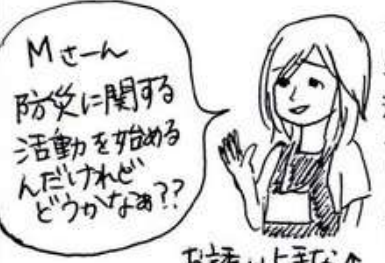 Mさーん
防災に関する
活動を始める
んだけれど
どうかなぁ??
お誘い上手な